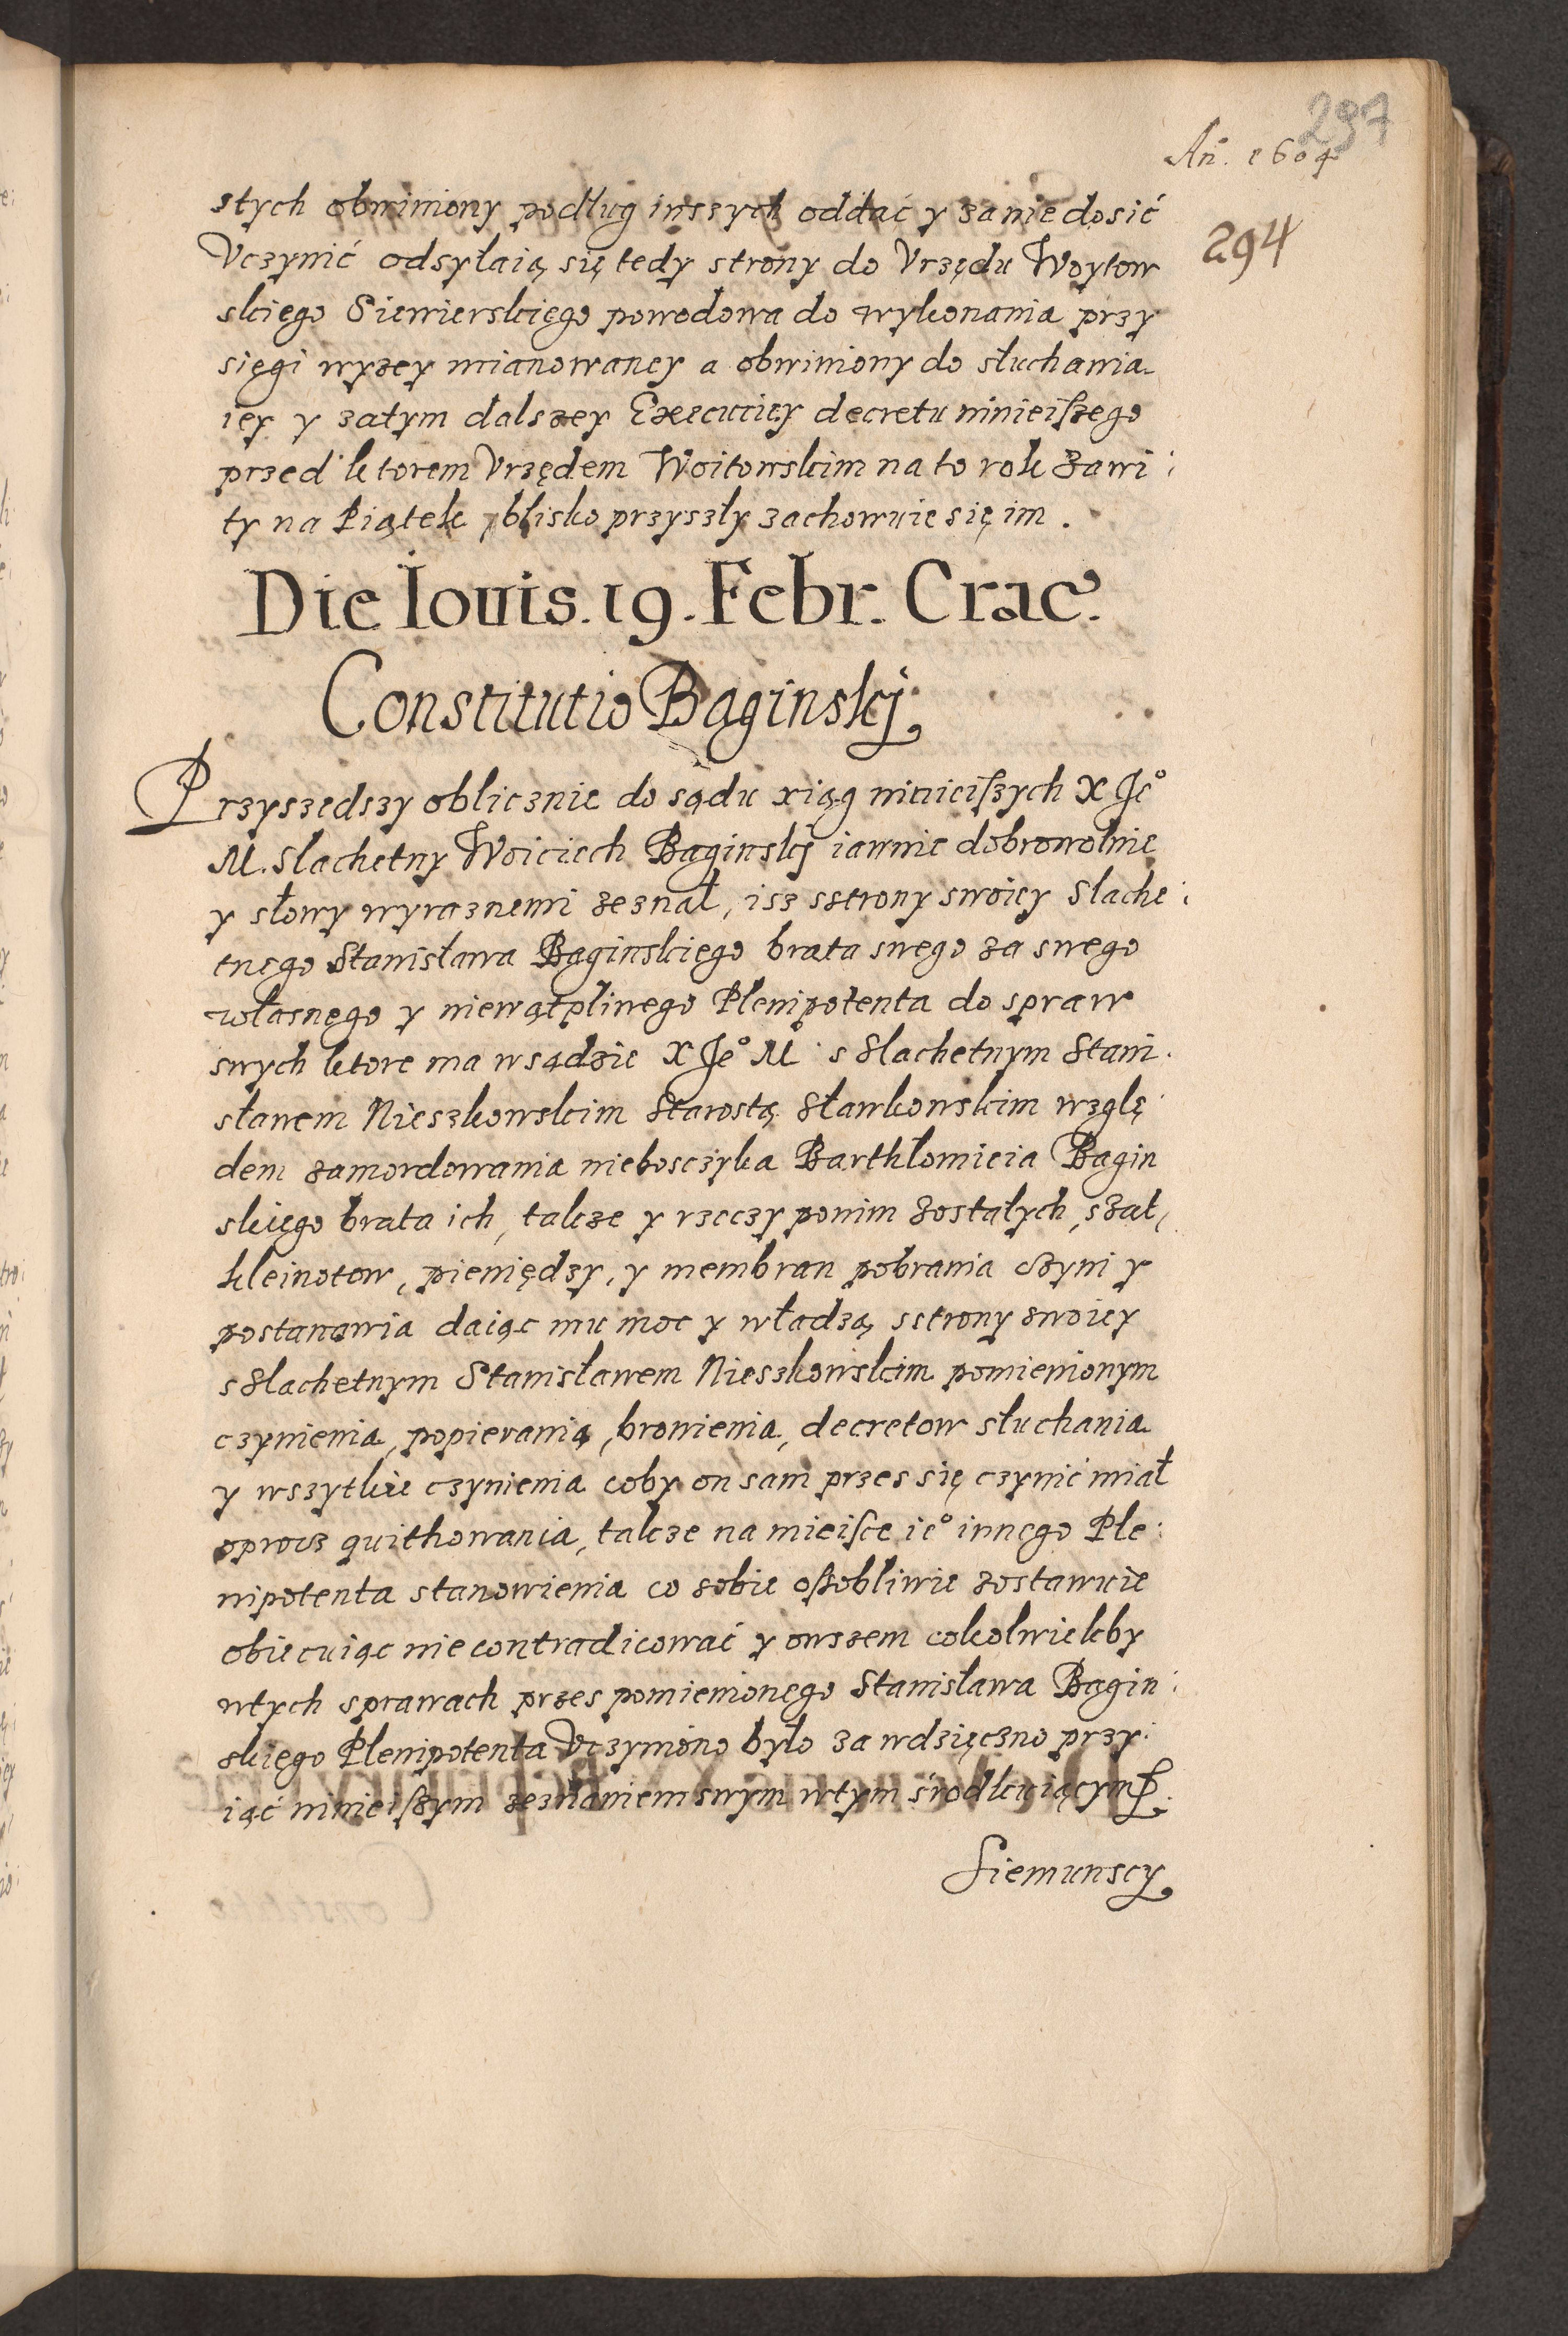 297
Añ. 1604
294
stych obwiniony podług inszych oddać y za nie dosić
Vczynić odsyłaią się tedy strony do Vrzędu Woytow
skiego Siewierskiego powodowa do wykonania przy
sięgi wyzey mianowaney a obwiniony do słuchania
iey y zatym dalszey Executiey decretu ninieiszego
przed ktorem Vrzędem Woitowskim na to rok Zawi:
ty na Piątek blisko przyszły zachowuie się im.
Die Iouis. 19. Febr. Crac.
Constitutio Baginskj.
Przyszedszy oblicznie do sądu xiąg ninieiszych X Je°
M. Slachetny Woiciech Baginskj iawnie dobrowolnie
y słowy wyraznemi zeznał, isz sstrony swoiey Slache:
tnego Stanisława Baginskiego brata swego za swego
własnego y niewątpliwego Plenipotenta do spraw
swych ktore ma wsądzie X Je° M s Slachetnym Stani:
sławem Nieszkowskim Starostą Sławkowskim wzglę:
dem zamordowania nieboszczyka Barthłomieia Bagin
skiego brata ich, takze y rzeczy ponim Zostałych, szat,
kleinotow, pieniędzy, y membran pobrania czyni y
postanawia daiąc mu moc y władzą sstrony swoiey
s Slachetnym Stanisławem Nieszkowskim pomienionym
czynienia, popierania, bronienia, decretow słuchania
y wszytkie czynienia coby on sam przes się czynić miał
oprocz quithowania, takze na mieisce ie° innego Ple:
nipotenta stanowienia co sobie oszobliwie zostawuie
obiecuiąc nie contradicować y owszem cokolwiekby
wtych sprawach przes pomienionego Stanisława Bagin:
skiego Plenipotenta Vczyniono było za wdzięczno przy:
iąć ninieiszym zeznaniem swym wtym środkuiącym.
Siemunscy